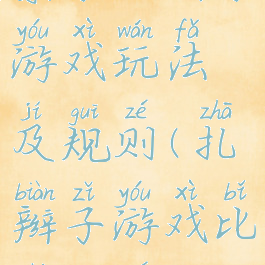 yóu xì wán fǎ
游戏玩法
jí guī zé zhā
及规则(扎
biàn zǐ yóu xì bǐ
辫子游戏比